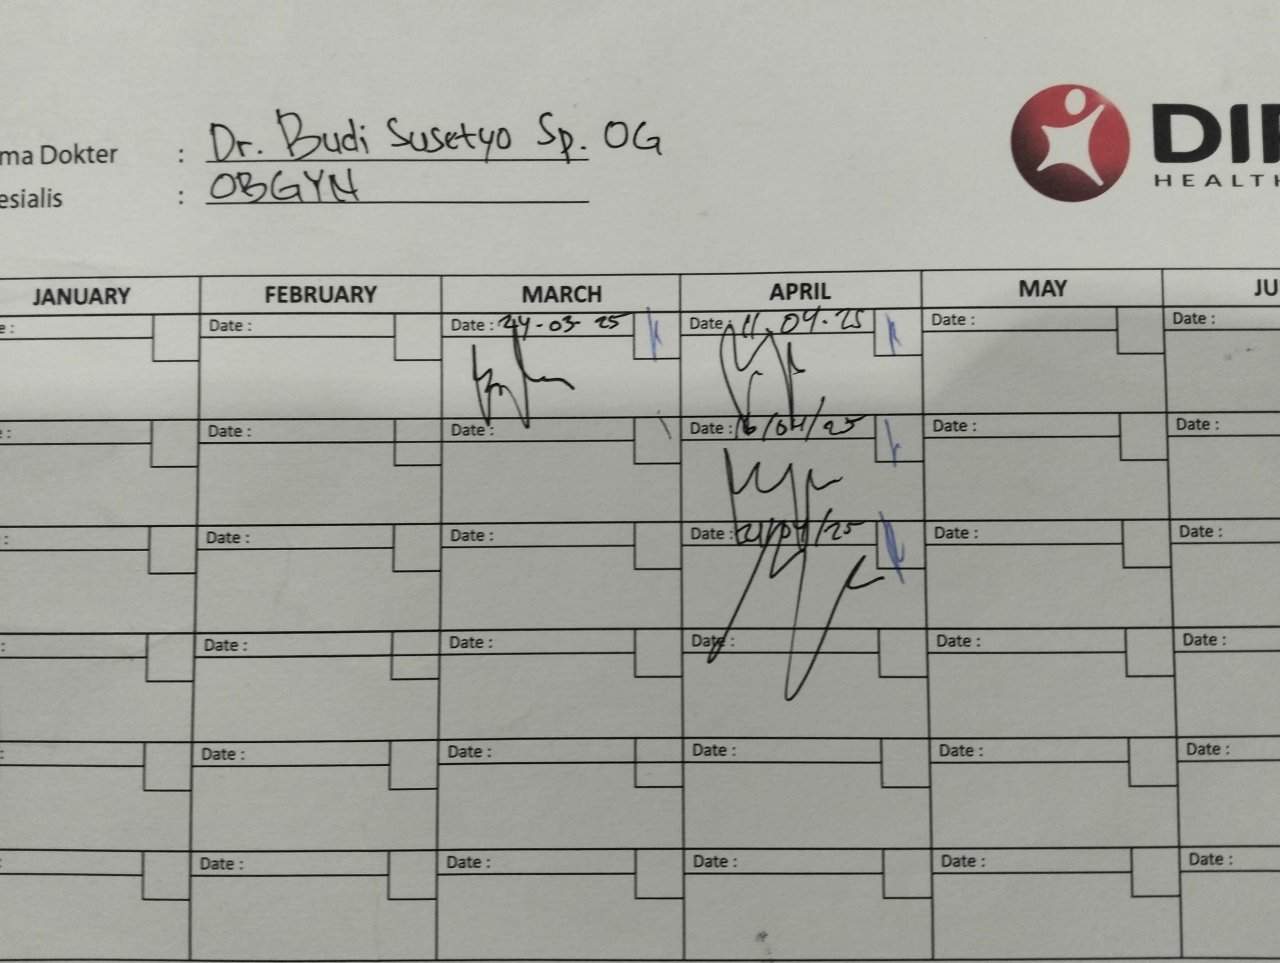 ma Dokter : Dr. Budi Susetyo Sp. OG
esialis : OBGYN
HEALTH
JANUARY FEBRUARY MARCH APRIL MAY JU
e : Date : Date : 24-03-25 Date : 11.04.25 Date : Date :
: Date : Date : Date : 16/04/25 Date : Date :
: Date : Date : Date : 21/04/25 Date : Date :
: Date : Date : Date : Date : Date :
: Date : Date : Date : Date : Date :
: Date : Date : Date : Date : Date :